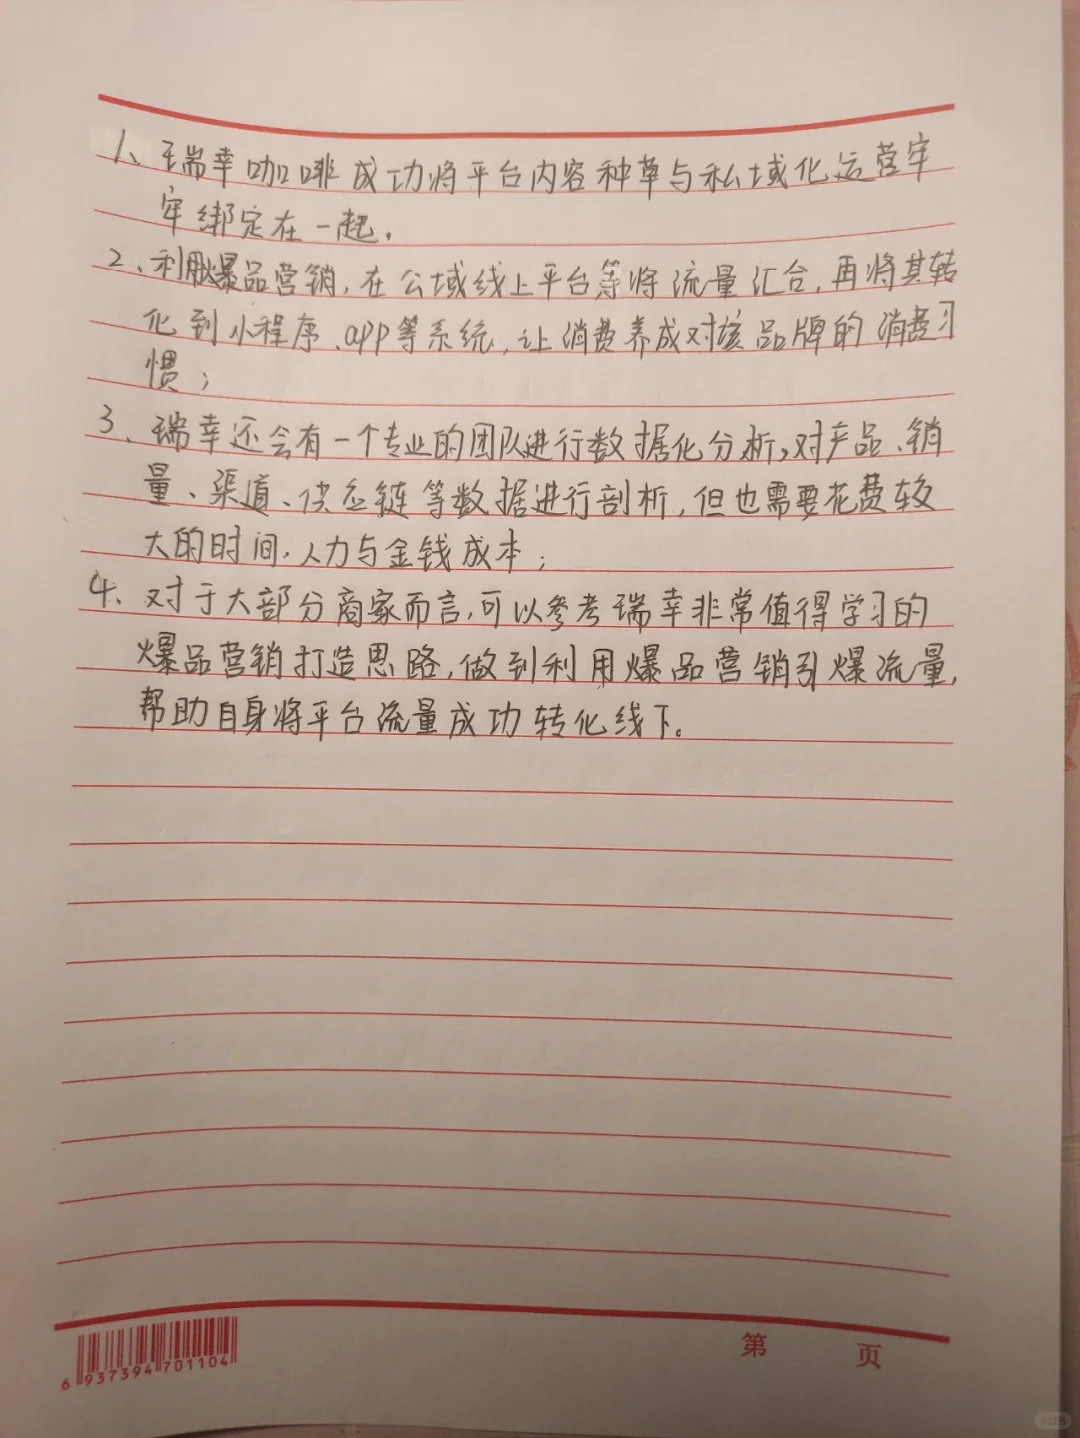 1、瑞幸咖啡成功将平台内容种草与私域化运营牢
牢绑定在一起.
2、利用爆品营销,在公域线上平台等将流量汇合,再将其转
化到小程序、app等系统,让消费养成对该品牌的消费习
惯;
3、瑞幸还会有一个专业的团队进行数据化分析,对产品、销
量、渠道、供应链等数据进行剖析,但也需要花费较
大的时间、人力与金钱成本;
4、对于大部分商家而言,可以参考瑞幸非常值得学习的
爆品营销打造思路,做到利用爆品营销引爆流量,
帮助自身将平台流量成功转化线下。
6 937394 701104
第 页
小红书